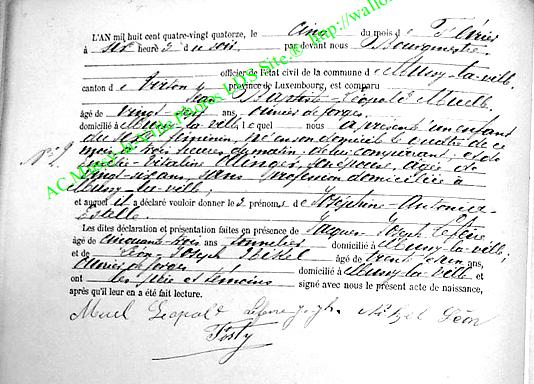 L'AN mil huit cent quatre-vingt quatorze, le cinq du mois de Février
à six heure s du soir par devant nous Bourgmestre
officier de l'état civil de la commune de Mussy-la-ville,
canton de Virton province de Luxembourg, est comparu
Jean Baptiste Léopold Muell
âgé de vingt sept ans ouvrier de forges,
domicilié à Mussy-la-ville; lequel nous a présenté un enfant
du sexe féminin, né en son domicile le quatre de ce
mois à trois heures du matin de lui comparant, et de
Vitaline son épouse, âgée de
vingt-six ans, sans profession domiciliée à
Mussy-la-ville;
et auquel il a déclaré vouloir donner le s prénoms de Joséphine-Antoinie-
Estelle.
Les dites déclaration et présentation faites en présence de Jacques Joseph Lefèvre
âgé de cinquante-trois ans, tonnelier domicilié à Mussy-la-ville;
et de Léon Joseph âgé de trente et un ans,
ouvrier de forges domicilié à Mussy-la-ville et
ont les père et témoins signé avec nous le présent acte de naissance,
après qu'il leur en a été fait lecture.
Muel Léopold Lefevre Jph. Léon
Fosty
N° 9